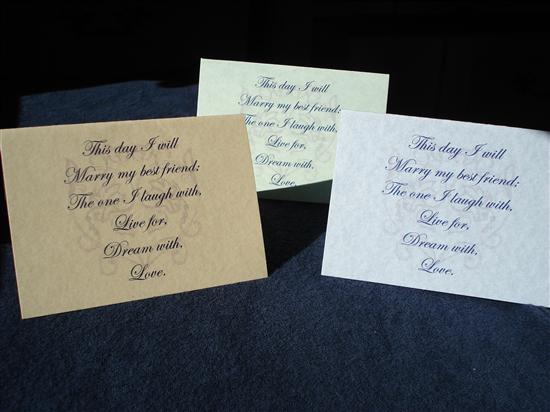 This day I will
Marry my best friend;
The one I laugh with,
Live for,
Dream with,
Love.
This day I will
Marry my best friend;
The one I laugh with,
Live for,
Dream with.
Love.
This day I will
Marry my best friend;
The one I laugh with,
Live for,
Dream with,
Love.